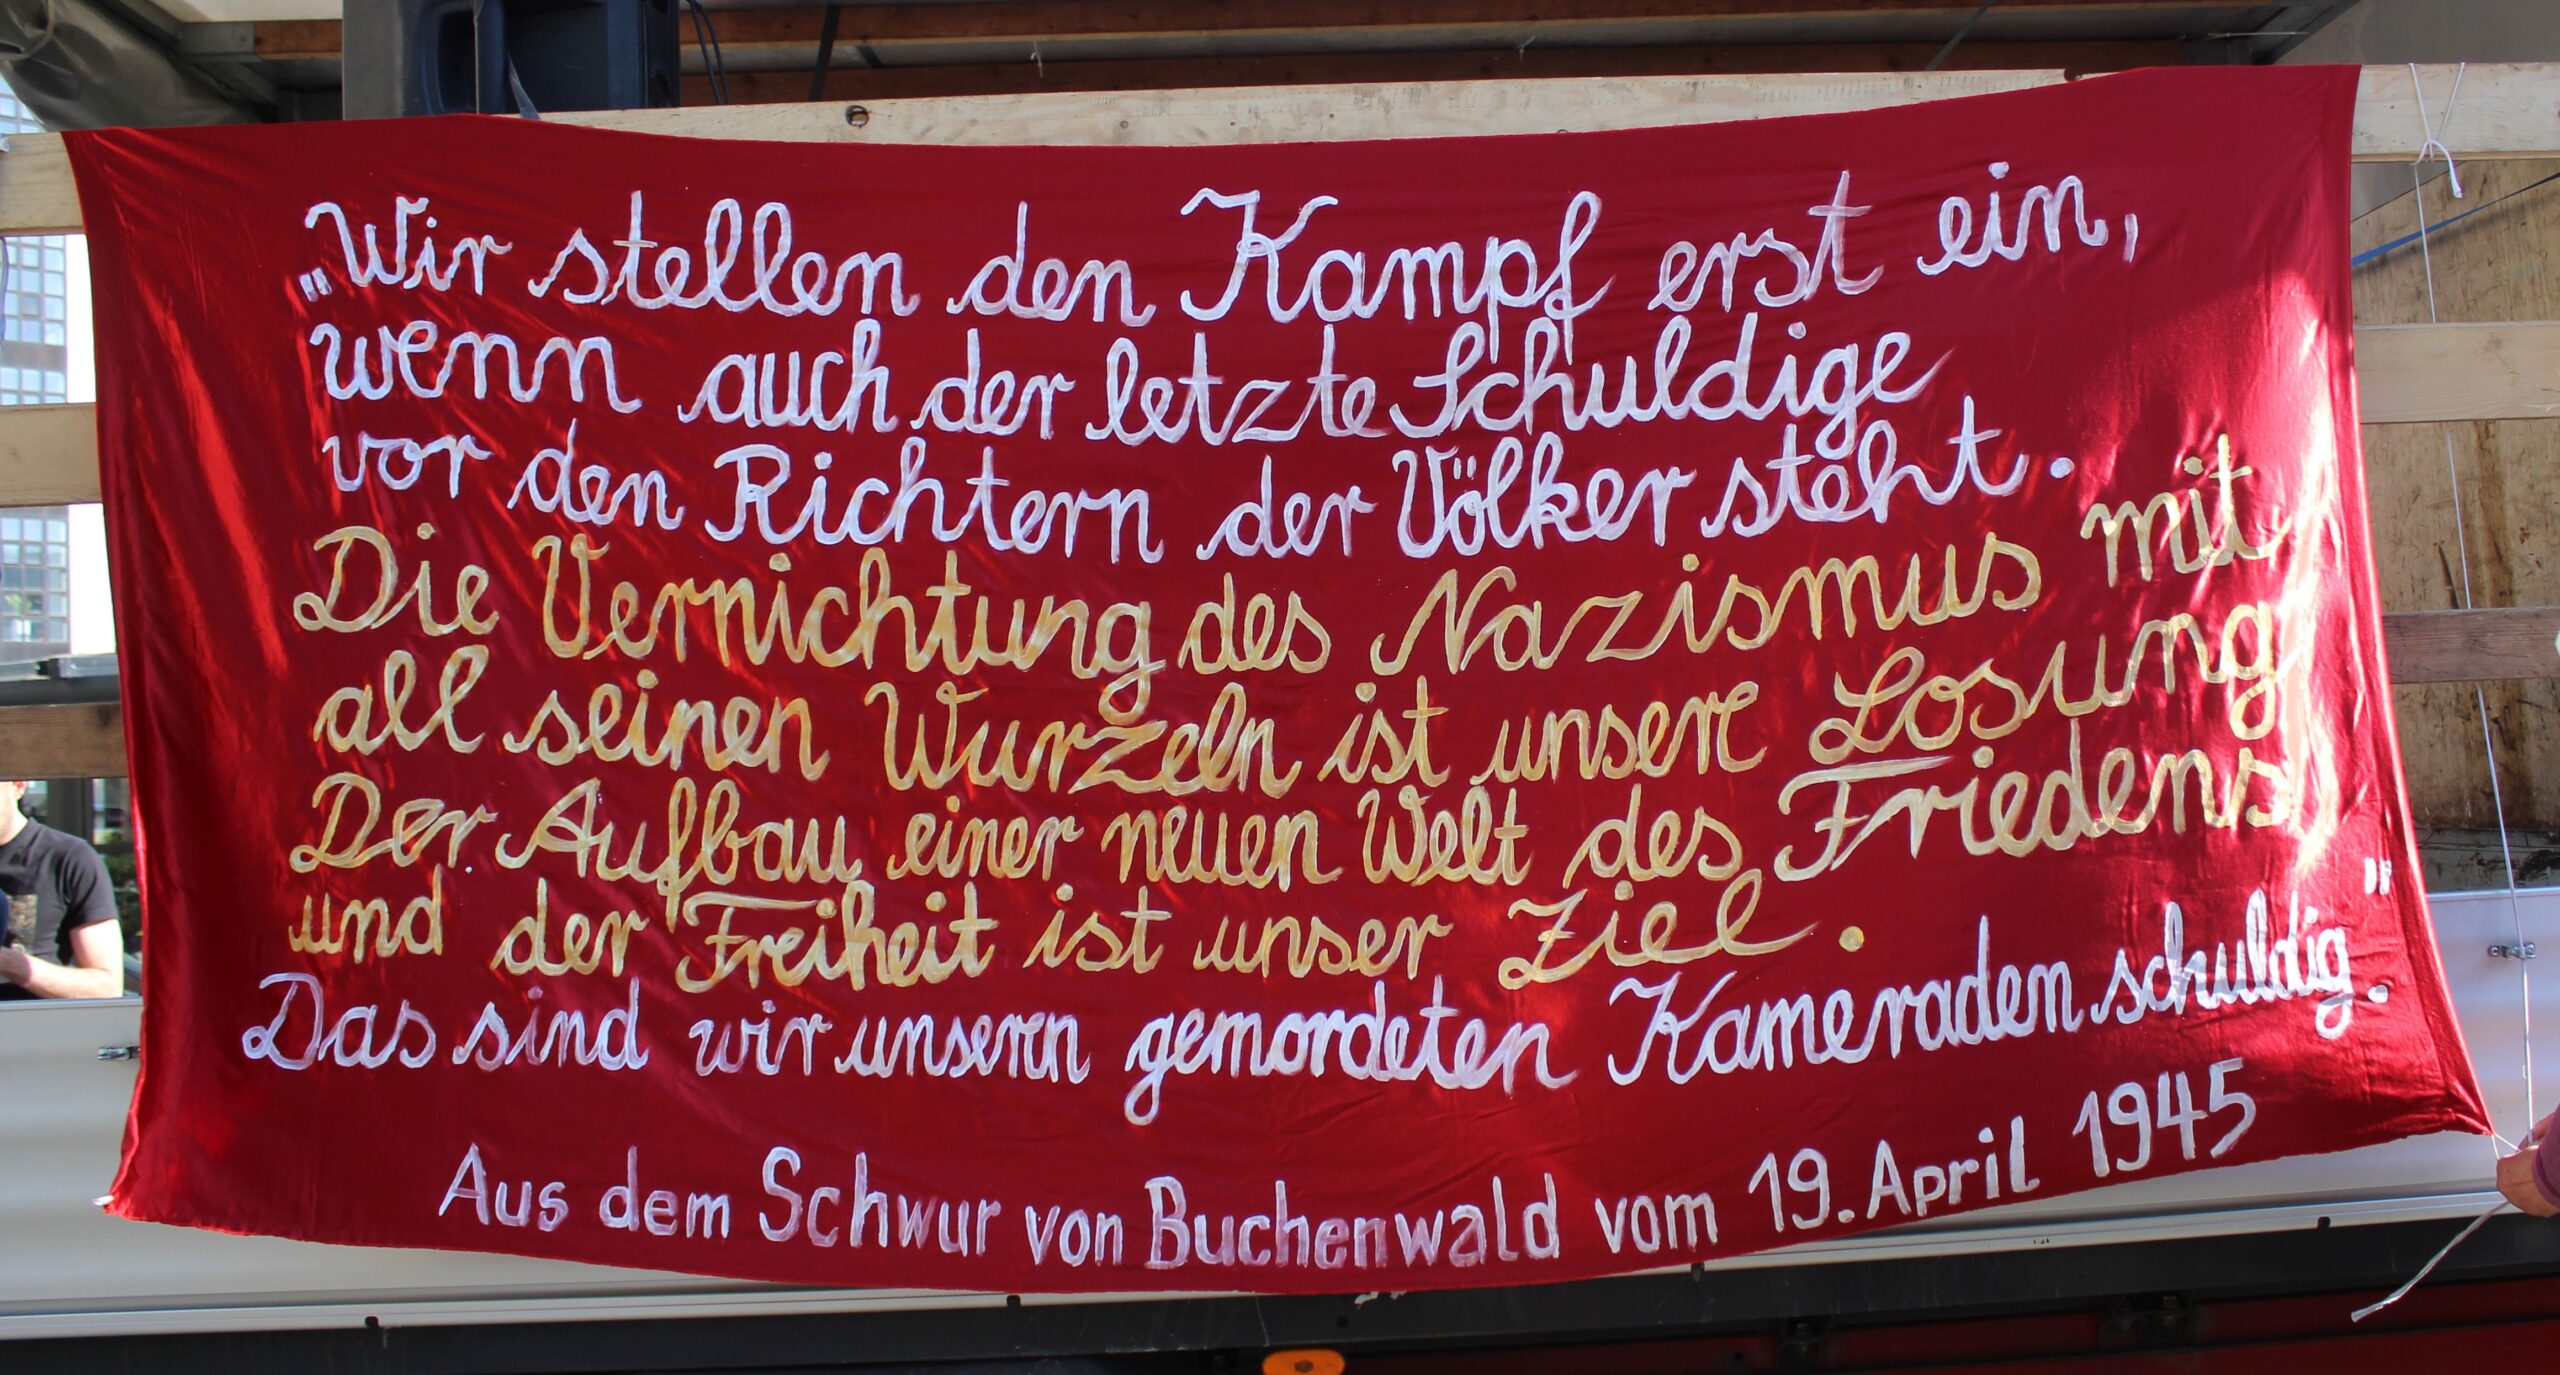 „Wir stellen den Kampf erst ein,
wenn auch der letzte Schuldige
vor den Richtern der Völker steht.
Die Vernichtung des Nazismus mit
all seinen Wurzeln ist unsere Losung
Der Aufbau einer neuen Welt des Friedens
und der Freiheit ist unser Ziel.
Das sind wir unseren gemordeten Kameraden schuldig."
Aus dem Schwur von Buchenwald vom 19. April 1945